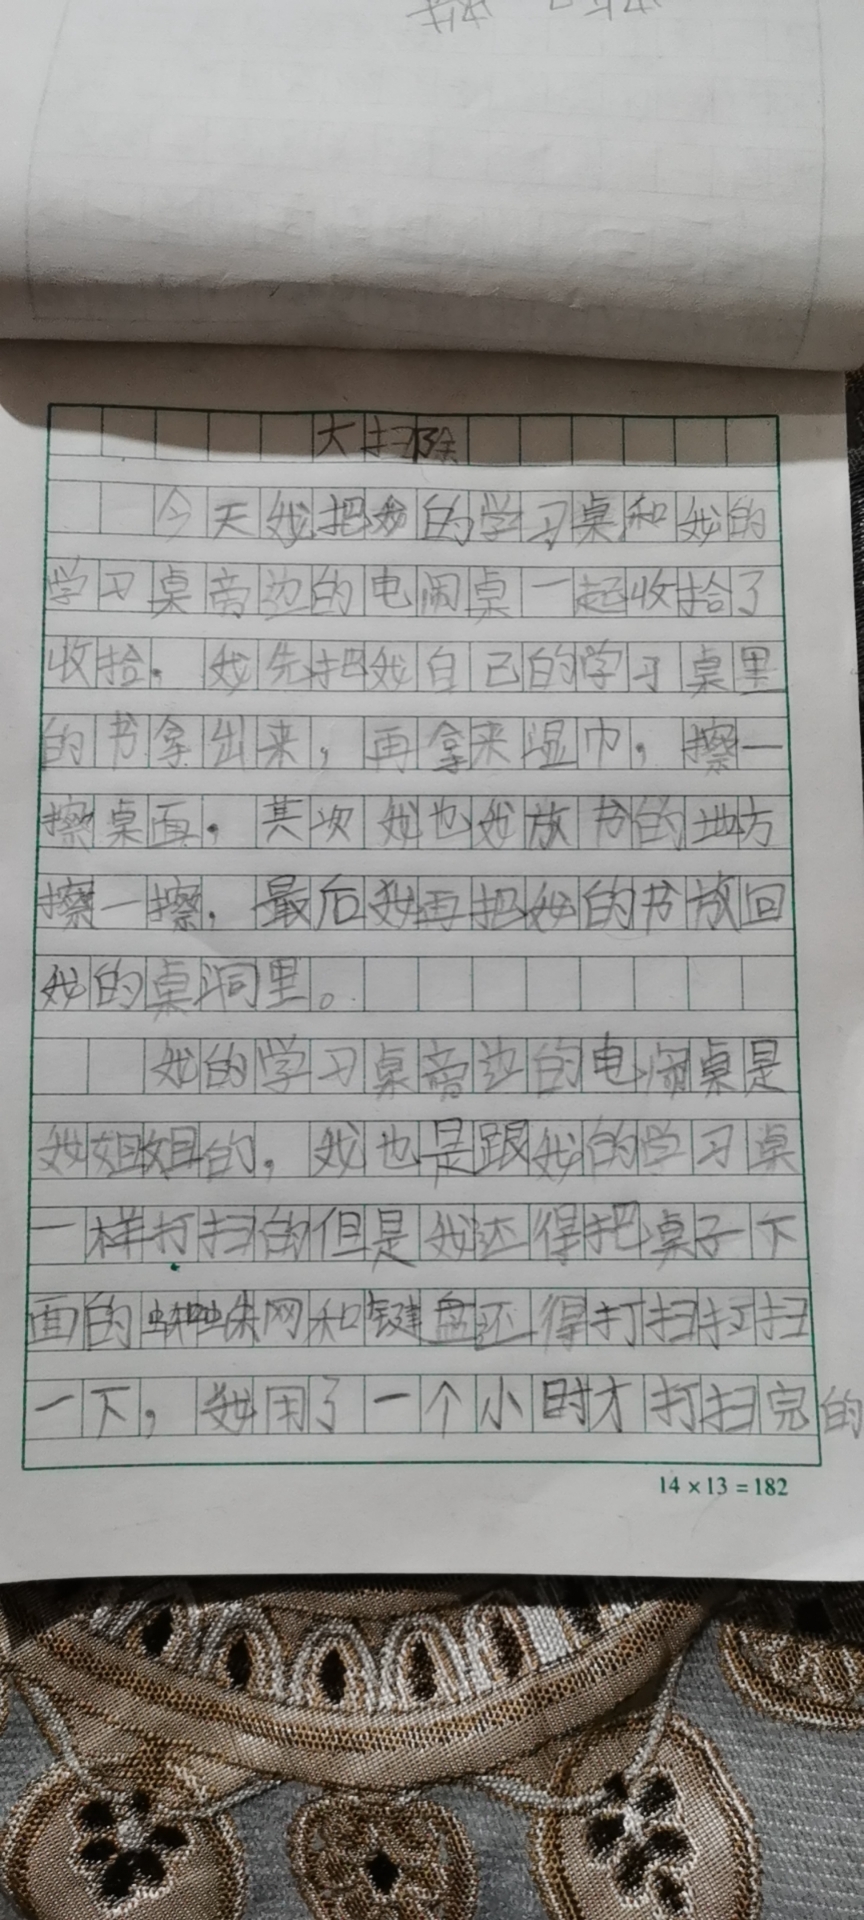 大扫除
今天我把我的学习桌和我的
学习桌旁边的电闹桌一起收拾了
收拾。我先把我自己的学习桌里
的书拿出来，再拿来湿巾，擦一
擦桌面，其次我也我放书的地方
擦一擦，最后我再把我的书放回
我的桌洞里。
我的学习桌旁边的电闹桌是
我姐姐的，我也是跟我的学习桌
一样打扫的但是我还得把桌子下
面的蜘蛛网和键盘还得打扫打扫
一下，我用了一个小时才打扫完的
14×13=182